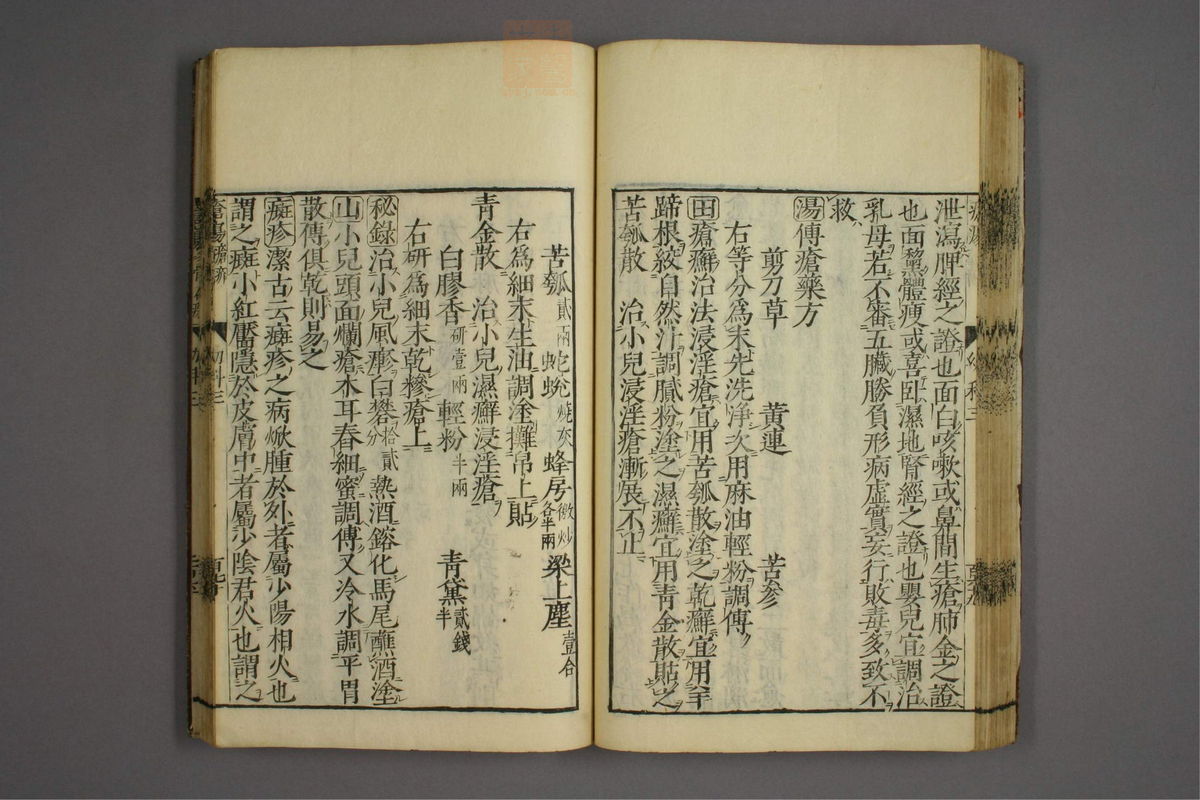 泄瀉脾經之證也面白咳嗽或鼻間生瘡肺金之證
也面黧體瘦或喜卧濕地腎經之證也嬰兒宜調治
乳母若不審五臟勝負形病虛實妄行敗毒多致不
救
湯傅瘡藥方
剪刀草 黄連 苦參
右等分爲末先洗淨次用麻油輕粉調傅
田瘡癬治法浸淫瘡宜用苦瓠散塗之乾癬宜用羊
蹄根絞自然汁調膩粉塗之濕癬宜用青金散貼之
苦瓠散 治小兒浸淫瘡漸展不止
苦瓠貳兩 蛇蛻燒灰 蜂房微炒各半兩 梁上塵壹合
右爲細末生油調塗攤帛上貼
青金散 治小兒濕癬浸淫瘡
白膠香研壹兩 輕粉半兩 青黛貳錢半
右研爲細末乾糝瘡上
秘錄治小兒風瘮白礬拾貳分熱酒鎔化馬尾蘸酒塗
山小兒頭面爛瘡木耳舂細蜜調傅又冷水調平胃
散傅俱乾則易之
癍疹潔古云癍疹之病焮腫於外者屬少陽相火也
謂之癍小紅靨隱於皮膚中者屬少陰君火也謂之